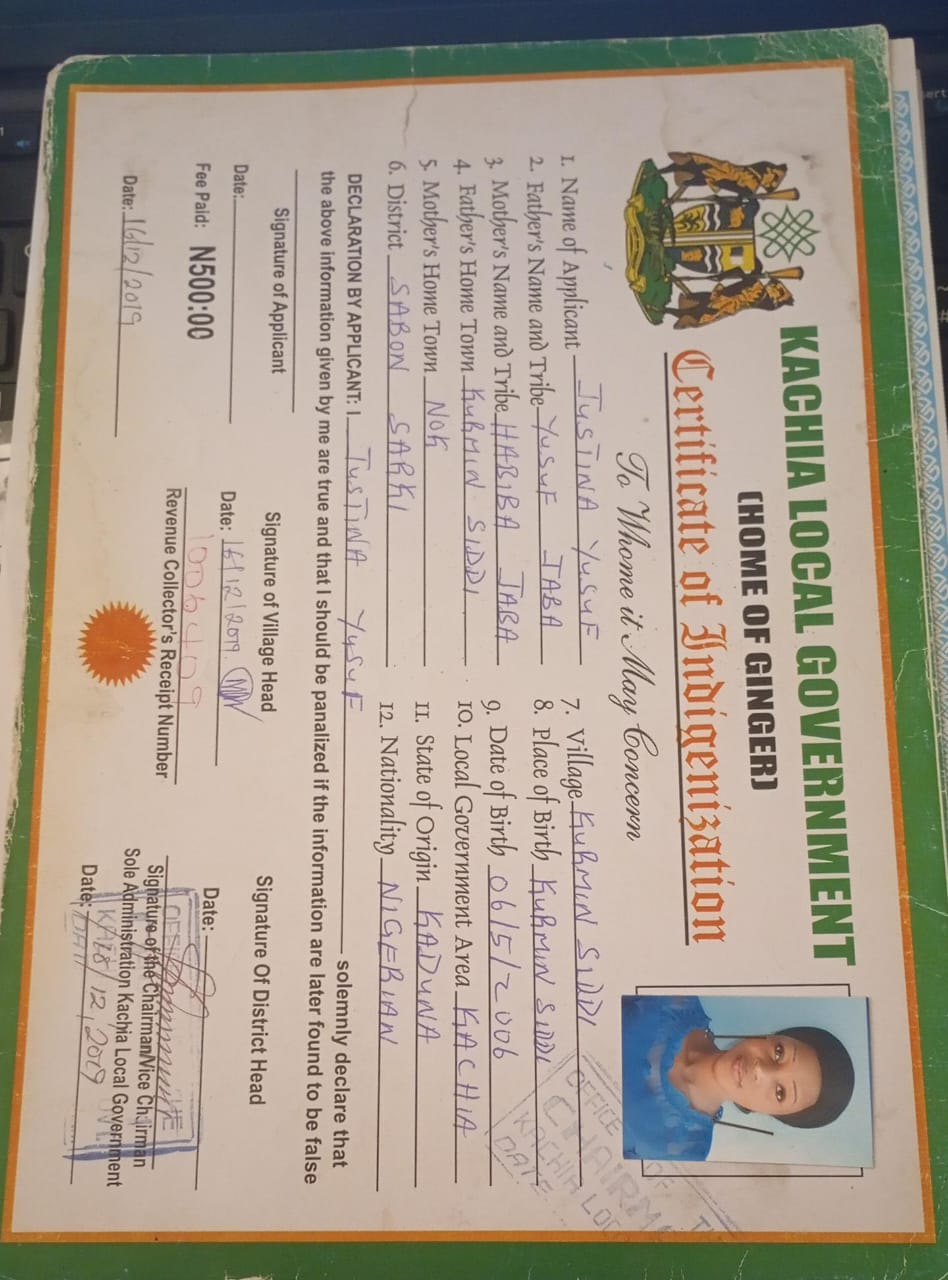 KACHIA LOCAL GOVERNMENT
(HOME OF GINGER)
Certificate of Indigenization
To Whome it May Concern
1. Name of Applicant JUSTINA YUSUF
2. Father's Name and Tribe YUSUF JABA
3. Mother's Name and Tribe HABIBA JABA
4. Father's Home Town KURMIN SIDDI
5. Mother's Home Town NOK
6. District SABON SARKI
7. Village KURMIN SIDDI
8. Place of Birth KURMIN SIDDI
9. Date of Birth 06/5/2006
10. Local Government Area KACHIA
11. State of Origin KADUNA
12. Nationality NIGERIAN
OFFICE OF
CHAIRMA
KACHIA LOC
DATE
DECLARATION BY APPLICANT: I JUSTINA YUSUF solemnly declare that
the above information given by me are true and that I should be panalized if the information are later found to be false
Signature of Applicant
Signature of Village Head
Signature Of District Head
Date:
Date: 16/12/2019
Date:
Fee Paid: N500:00
1006409
Revenue Collector's Receipt Number
Signature of the Chairman/Vice Chairman
Sole Administration Kachia Local Government
Date: 16/12/2019
Date: /12/2019